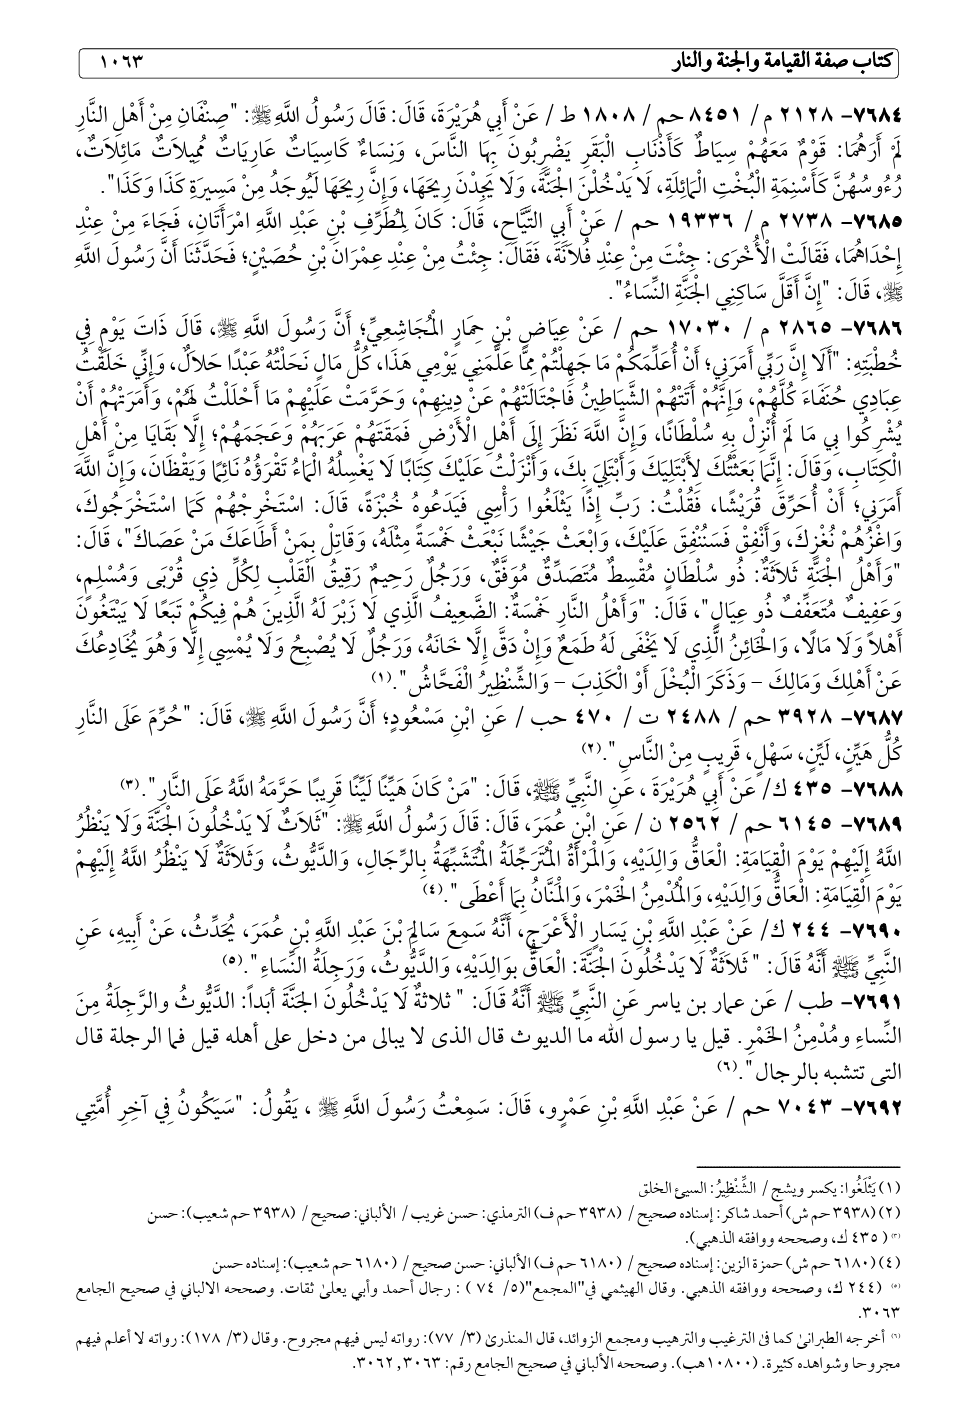 كتاب صفة القيامة والجنة والنار ١٠٦٣
٧٦٨٤- ٢١٢٨ م/ ٨٤٥١ حم / ١٨٠٨ ط / عَنْ أَبِي هُرَيْرَةَ، قَالَ: قَالَ رَسُولُ اللَّهِ ﷺ: "صِنْفَانِ مِنْ أَهْلِ النَّارِ
لَمْ أَرَهُمَا: قَوْمٌ مَعَهُمْ سِيَاطٌ كَأَذْنَابِ الْبَقَرِ يَضْرِبُونَ بِهَا النَّاسَ، وَنِسَاءٌ كَاسِيَاتٌ عَارِيَاتٌ مُمِيلاَتٌ مَائِلاَتٌ،
رُءُوسُهُنَّ كَأَسْنِمَةِ الْبُخْتِ الْمَائِلَةِ، لَا يَدْخُلْنَ الْجَنَّةَ، وَلَا يَجِدْنَ رِيحَهَا، وَإِنَّ رِيحَهَا لَيُوجَدُ مِنْ مَسِيرَةِ كَذَا وَكَذَا".
٧٦٨٥- ٢٧٣٨ م / ١٩٣٣٦ حم / عَنْ أَبِي التَّيَّاحِ، قَالَ: كَانَ لِمُطَرِّفِ بْنِ عَبْدِ اللَّهِ امْرَأَتَانِ، فَجَاءَ مِنْ عِنْدِ
إِحْدَاهُمَا، فَقَالَتْ الْأُخْرَى: جِئْتَ مِنْ عِنْدِ فُلاَنَةَ، فَقَالَ: جِئْتُ مِنْ عِنْدِ عِمْرَانَ بْنِ حُصَيْنٍ؛ فَحَدَّثَنَا أَنَّ رَسُولَ اللَّهِ
ﷺ، قَالَ: "إِنَّ أَقَلَّ سَاكِنِي الْجَنَّةِ النِّسَاءُ".
٧٦٨٦- ٢٨٦٥ م / ١٧٠٣٠ حم / عَنْ عِيَاضِ بْنِ حِمَارٍ الْمُجَاشِعِيِّ؛ أَنَّ رَسُولَ اللَّهِ ﷺ، قَالَ ذَاتَ يَوْمٍ فِي
خُطْبَتِهِ: "أَلَا إِنَّ رَبِّي أَمَرَنِي؛ أَنْ أُعَلِّمَكُمْ مَا جَهِلْتُمْ مِمَّا عَلَّمَنِي يَوْمِي هَذَا، كُلُّ مَالٍ نَحَلْتُهُ عَبْدًا حَلَالٌ، وَإِنِّي خَلَقْتُ
عِبَادِي حُنَفَاءَ كُلَّهُمْ، وَإِنَّهُمْ أَتَتْهُمْ الشَّيَاطِينُ فَاجْتَالَتْهُمْ عَنْ دِينِهِمْ، وَحَرَّمَتْ عَلَيْهِمْ مَا أَحْلَلْتُ لَهُمْ، وَأَمَرَتْهُمْ أَنْ
يُشْرِكُوا بِي مَا لَمْ أُنْزِلْ بِهِ سُلْطَانًا، وَإِنَّ اللَّهَ نَظَرَ إِلَى أَهْلِ الْأَرْضِ فَمَقَتَهُمْ عَرَبَهُمْ وَعَجَمَهُمْ؛ إِلَّا بَقَايَا مِنْ أَهْلِ
الْكِتَابِ، وَقَالَ: إِنَّمَا بَعَثْتُكَ لِأَبْتَلِيَكَ وَأَبْتَلِيَ بِكَ، وَأَنْزَلْتُ عَلَيْكَ كِتَابًا لَا يَغْسِلُهُ الْمَاءُ تَقْرَؤُهُ نَائِمًا وَيَقْظَانَ، وَإِنَّ اللَّهَ
أَمَرَنِي؛ أَنْ أُحَرِّقَ قُرَيْشًا، فَقُلْتُ: رَبِّ إِذًا يَثْلَغُوا رَأْسِي فَيَدَعُوهُ خُبْزَةً، قَالَ: اسْتَخْرِجْهُمْ كَمَا اسْتَخْرَجُوكَ،
وَاغْزُهُمْ نُغْزِكَ، وَأَنْفِقْ فَسَنُنْفِقَ عَلَيْكَ، وَابْعَثْ جَيْشًا نَبْعَثْ خَمْسَةً مِثْلَهُ، وَقَاتِلْ بِمَنْ أَطَاعَكَ مَنْ عَصَاكَ"، قَالَ:
"وَأَهْلُ الْجَنَّةِ ثَلاَثَةٌ: ذُو سُلْطَانٍ مُقْسِطٌ مُتَصَدِّقٌ مُوَفَّقٌ، وَرَجُلٌ رَحِيمٌ رَقِيقُ الْقَلْبِ لِكُلِّ ذِي قُرْبَى وَمُسْلِمٍ،
وَعَفِيفٌ مُتَعَفِّفٌ ذُو عِيَالٍ"، قَالَ: "وَأَهْلُ النَّارِ خَمْسَةٌ: الضَّعِيفُ الَّذِي لَا زَبْرَ لَهُ الَّذِينَ هُمْ فِيكُمْ تَبَعًا لَا يَبْتَغُونَ
أَهْلاً وَلَا مَالًا، وَالْخَائِنُ الَّذِي لَا يَخْفَى لَهُ طَمَعٌ وَإِنْ دَقَّ إِلَّا خَانَهُ، وَرَجُلٌ لَا يُصْبِحُ وَلَا يُمْسِي إِلَّا وَهُوَ يُخَادِعُكَ
عَنْ أَهْلِكَ وَمَالِكَ – وَذَكَرَ الْبُخْلَ أَوْ الْكَذِبَ – وَالشِّنْظِيرُ الْفَحَّاشُ ".(١)
٧٦٨٧- ٣٩٢٨ حم / ٢٤٨٨ ت / ٤٧٠ حب / عَنِ ابْنِ مَسْعُودٍ؛ أَنَّ رَسُولَ اللَّهِ ﷺ، قَالَ: "حُرِّمَ عَلَى النَّارِ
كُلُّ هَيِّنٍ، لَيِّنٍ، سَهْلٍ، قَرِيبٍ مِنْ النَّاسِ ".(٢)
٧٦٨٨- ٤٣٥ ك/ عَنْ أَبِي هُرَيْرَةَ ، عَنِ النَّبِيِّ ﷺ، قَالَ: "مَنْ كَانَ هَيِّنًا لَيِّنًا قَرِيبًا حَرَّمَهُ اللَّهُ عَلَى النَّارِ".(٣)
٧٦٨٩- ٦١٤٥ حم / ٢٥٦٢ ن / عَنِ ابْنِ عُمَرَ، قَالَ: قَالَ رَسُولُ اللَّهِ ﷺ: "ثَلاَثٌ لَا يَدْخُلُونَ الْجَنَّةَ وَلَا يَنْظُرُ
اللَّهُ إِلَيْهِمْ يَوْمَ الْقِيَامَةِ: الْعَاقُّ وَالِدَيْهِ، وَالْمَرْأَةُ الْمُتَرَجِّلَةُ الْمُتَشَبِّهَةُ بِالرِّجَالِ، وَالدَّيُّوثُ، وَثَلَاثَةٌ لَا يَنْظُرُ اللَّهُ إِلَيْهِمْ
يَوْمَ الْقِيَامَةِ: الْعَاقُّ وَالِدَيْهِ، وَالْمُدْمِنُ الْخَمْرَ، وَالْمَنَّانُ بِمَا أَعْطَى ".(٤)
٧٦٩٠- ٢٤٤ ك/ عَنْ عَبْدِ اللَّهِ بْنِ يَسَارٍ الْأَعْرَجِ، أَنَّهُ سَمِعَ سَالِمَ بْنَ عَبْدِ اللَّهِ بْنِ عُمَرَ، يُحَدِّثُ، عَنْ أَبِيهِ، عَنِ
النَّبِيِّ ﷺ أَنَّهُ قَالَ: " ثَلاَثَةٌ لَا يَدْخُلُونَ الْجَنَّةَ: الْعَاقُّ بِوَالِدَيْهِ، وَالدَّيُّوثُ، وَرَجِلَةُ النِّسَاءِ".(٥)
٧٦٩١- طب / عَن عمار بن ياسر عَنِ النَّبِيِّ ﷺ أَنَّهُ قَالَ: " ثلاثةٌ لَا يَدْخُلُونَ الجَنَّةَ أبَداً: الدَّيُّوثُ والرَّجِلَةُ مِنَ
النِّساءِ ومُدْمِنُ الخَمْرِ. قيل يا رسول الله ما الديوث قال الذى لا يبالى من دخل على أهله قيل فما الرجلة قال
التى تتشبه بالرجال".(٦)
٧٦٩٢- ٧٠٤٣ حم / عَنْ عَبْدِ اللَّهِ بْنِ عَمْرٍو، قَالَ: سَمِعْتُ رَسُولَ اللَّهِ ﷺ ، يَقُولُ: "سَيَكُونُ فِي آخِرِ أُمَّتِي
(١) يَثْلَغُوا: يكسر ويشج / الشِّنْظِيرُ: السيئ الخلق
(٢) (٣٩٣٨ حم ش) أحمد شاكر: إسناده صحيح / (٣٩٣٨ حم ف) الترمذي: حسن غريب / الألباني: صحيح / (٣٩٣٨ حم شعيب): حسن
(٣) ( ٤٣٥ ك، وصححه ووافقه الذهبي).
(٤) (٦١٨٠ حم ش) حمزة الزين: إسناده صحيح / (٦١٨٠ حم ف) الألباني: حسن صحيح / (٦١٨٠ حم شعيب): إسناده حسن
(٥) (٢٤٤ ك، وصححه ووافقه الذهبي. وقال الهيثمي في"المجمع"(٥/ ٧٤ ) : رجال أحمد وأبي يعلىٰ ثقات. وصححه الالباني في صحيح الجامع
٣٠٦٣.
(٦) أخرجه الطبرانىٰ كما فىٰ الترغيب والترهيب ومجمع الزوائد، قال المنذرىٰ (٣/ ٧٧): رواته ليس فيهم مجروح. وقال (٣/ ١٧٨): رواته لا أعلم فيهم
مجروحا وشواهده كثيرة. (١٠٨٠٠هب). وصححه الألباني في صحيح الجامع رقم: ٣٠٦٣, ٣٠٦٢.